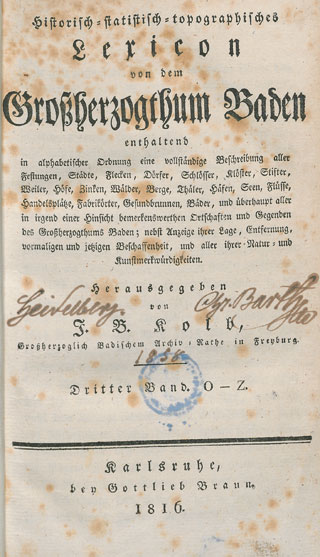 Historisch-statistisch-topographisches
Lexicon
von dem
Großherzogthum Baden
enthaltend
in alphabetischer Ordnung eine vollständige Beschreibung aller
Festungen, Städte, Flecken, Dörfer, Schlösser, Klöster, Stifter,
Weiler, Höfe, Zinken, Wälder, Berge, Thäler, Häfen, Seen, Flüsse,
Handelsplätze, Fabrikörter, Gesundbrunnen, Bäder, und überhaupt aller
in irgend einer Hinsicht bemerkenswerthen Ortschaften und Gegenden
des Großherzogthums Baden; nebst Anzeige ihrer Lage, Entfernung,
vormaligen und jetzigen Beschaffenheit, und aller ihrer Natur- und
Kunstmerkwürdigkeiten.
Herausgegeben
Heidelberg. von
J. B. Kolb,
Großherzoglich Badischem Archiv-Rathe in Freyburg.
1838
Dritter Band. O–Z.
Karlsruhe,
bey Gottlieb Braun.
1816.